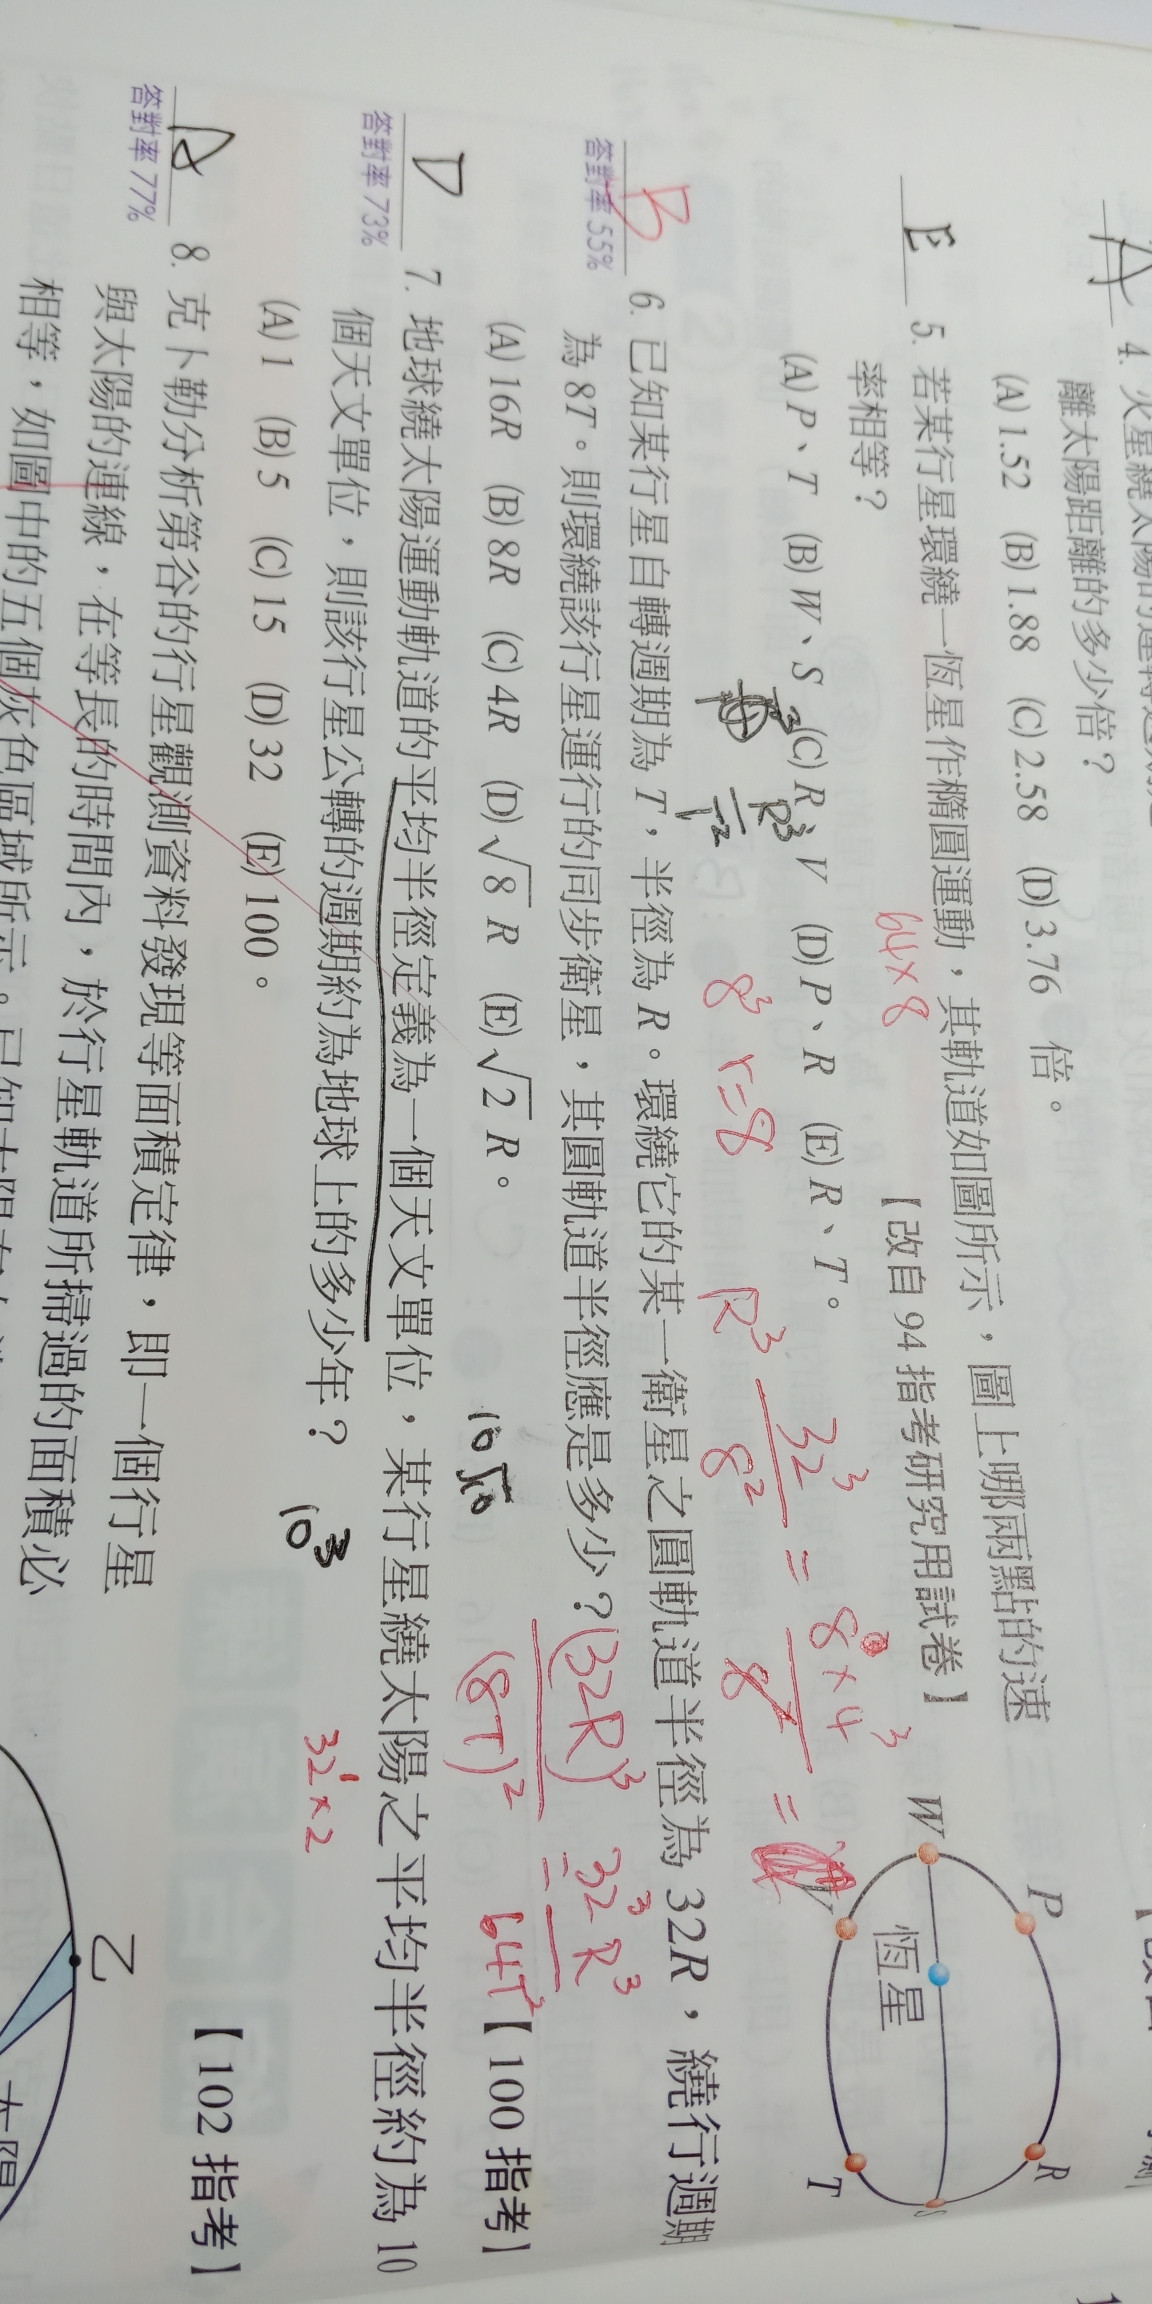 A 4. 火星繞太陽的運轉週期是
離太陽距離的多少倍？
(A) 1.52 (B) 1.88 (C) 2.58 (D) 3.76 倍。
E 5. 若某行星環繞一恆星作橢圓運動，其軌道如圖所示，圖上哪兩點的速
率相等？
【改自 94 指考研究用試卷】
64×8
(A) P、T (B) W、S (C) R、V (D) P、R (E) R、T。
P
W
恆星
V
R
T
S
R³
T²
8³ r=8
R³ 32³/8² = 8×4³/8 =
B 答對率 55%
6. 已知某行星自轉週期為 T，半徑為 R。環繞它的某一衛星之圓軌道半徑為 32R，繞行週期
為 8T。則環繞該行星運行的同步衛星，其圓軌道半徑應是多少？
(32R)³/(8T)² = 32³R³/64T²
(A) 16R (B) 8R (C) 4R (D) √8 R (E) √2 R。
【100 指考】
10√10
D 答對率 73%
7. 地球繞太陽運動軌道的平均半徑定義為一個天文單位，某行星繞太陽之平均半徑約為 10
個天文單位，則該行星公轉的週期約為地球上的多少年？
10³
32×2
(A) 1 (B) 5 (C) 15 (D) 32 (E) 100。
【102 指考】
A 答對率 77%
8. 克卜勒分析第谷的行星觀測資料發現等面積定律，即一個行星
與太陽的連線，在等長的時間內，於行星軌道所掃過的面積必
相等，如圖中的五個灰色區域所示。已知太陽
乙
太陽